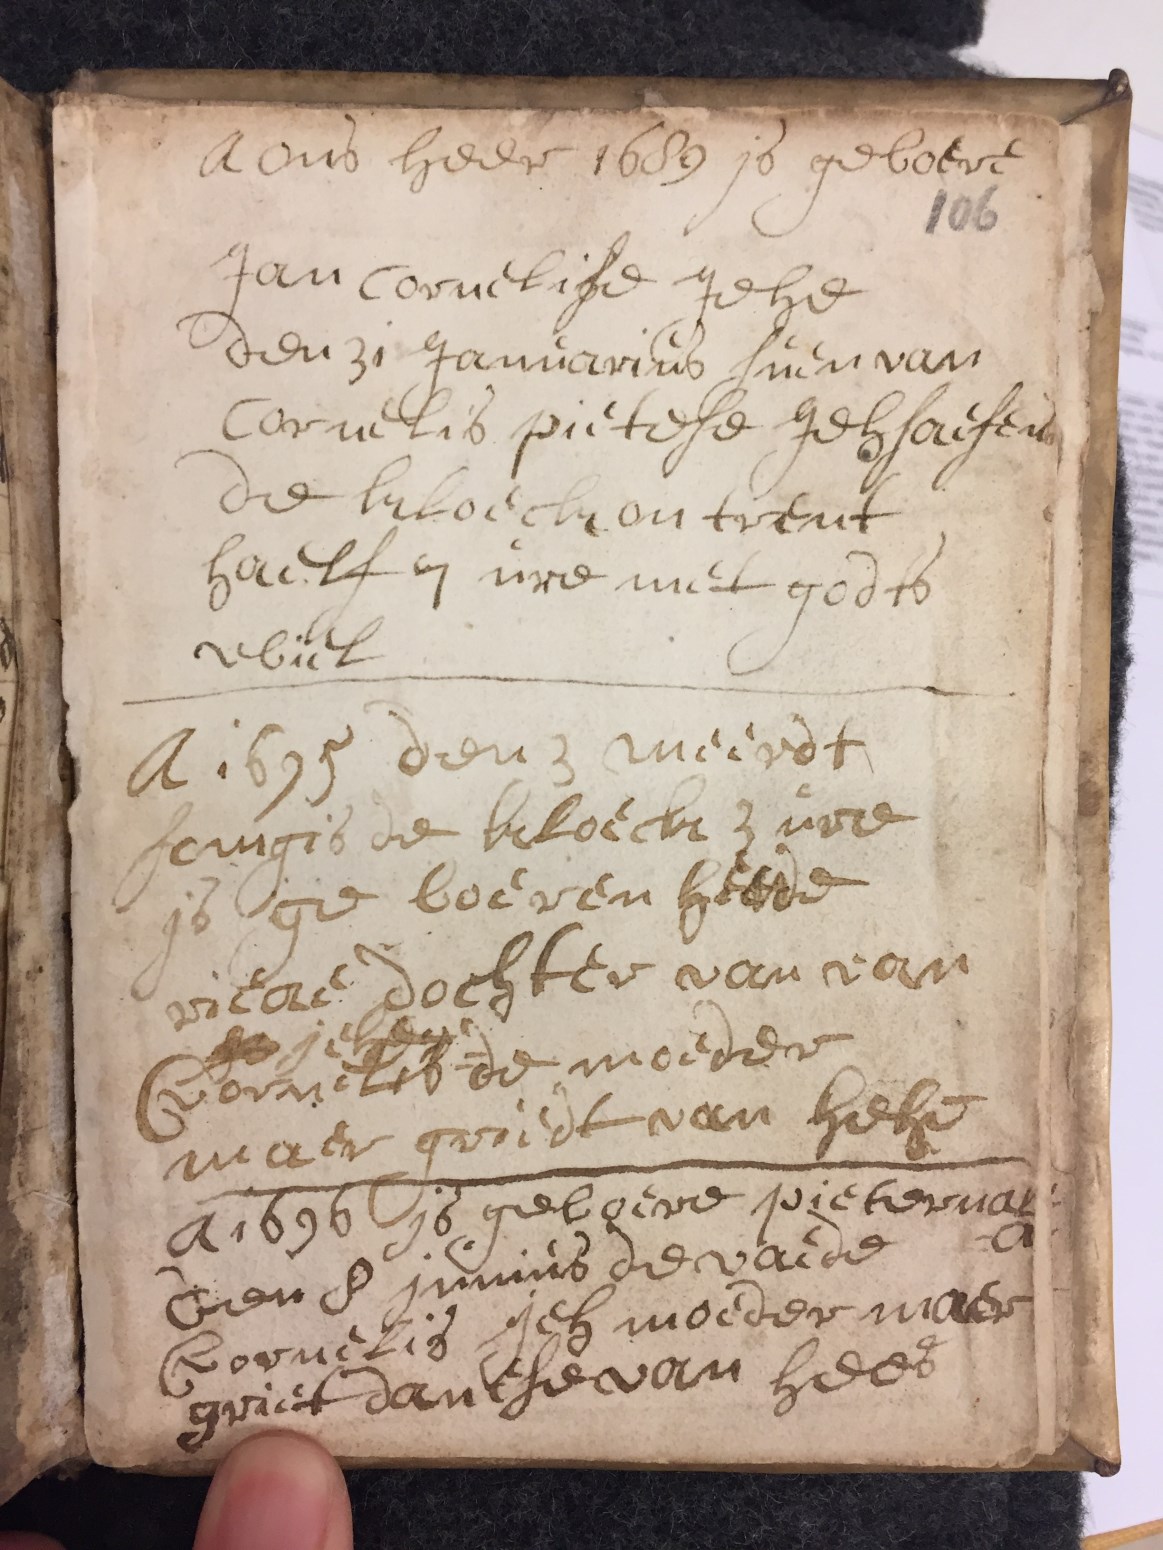 A ons heer 1689 js geboere
106
Jan Cornelisse Jehe
den 31 Januarius suen van
Cornelis pietese Jeh
de kloeck on trent
haelf 7 ure met godts
A 1695 den 3 meerdt
de kloeck 3 ure
js ge boeren
dochter van van
Cornelis de moeder
maer griedt van hehe
A 1696 js geboere pieternae
den 8 junius de vaede
Cornelis Jeh moeder maer
griet danese van hees